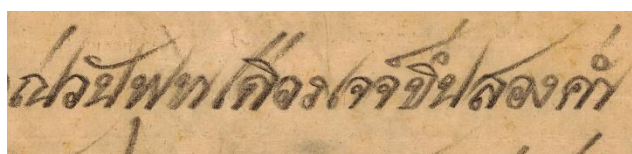 ณ่วันพุทเดือรเจจ์ขึ้นสองคํ่า